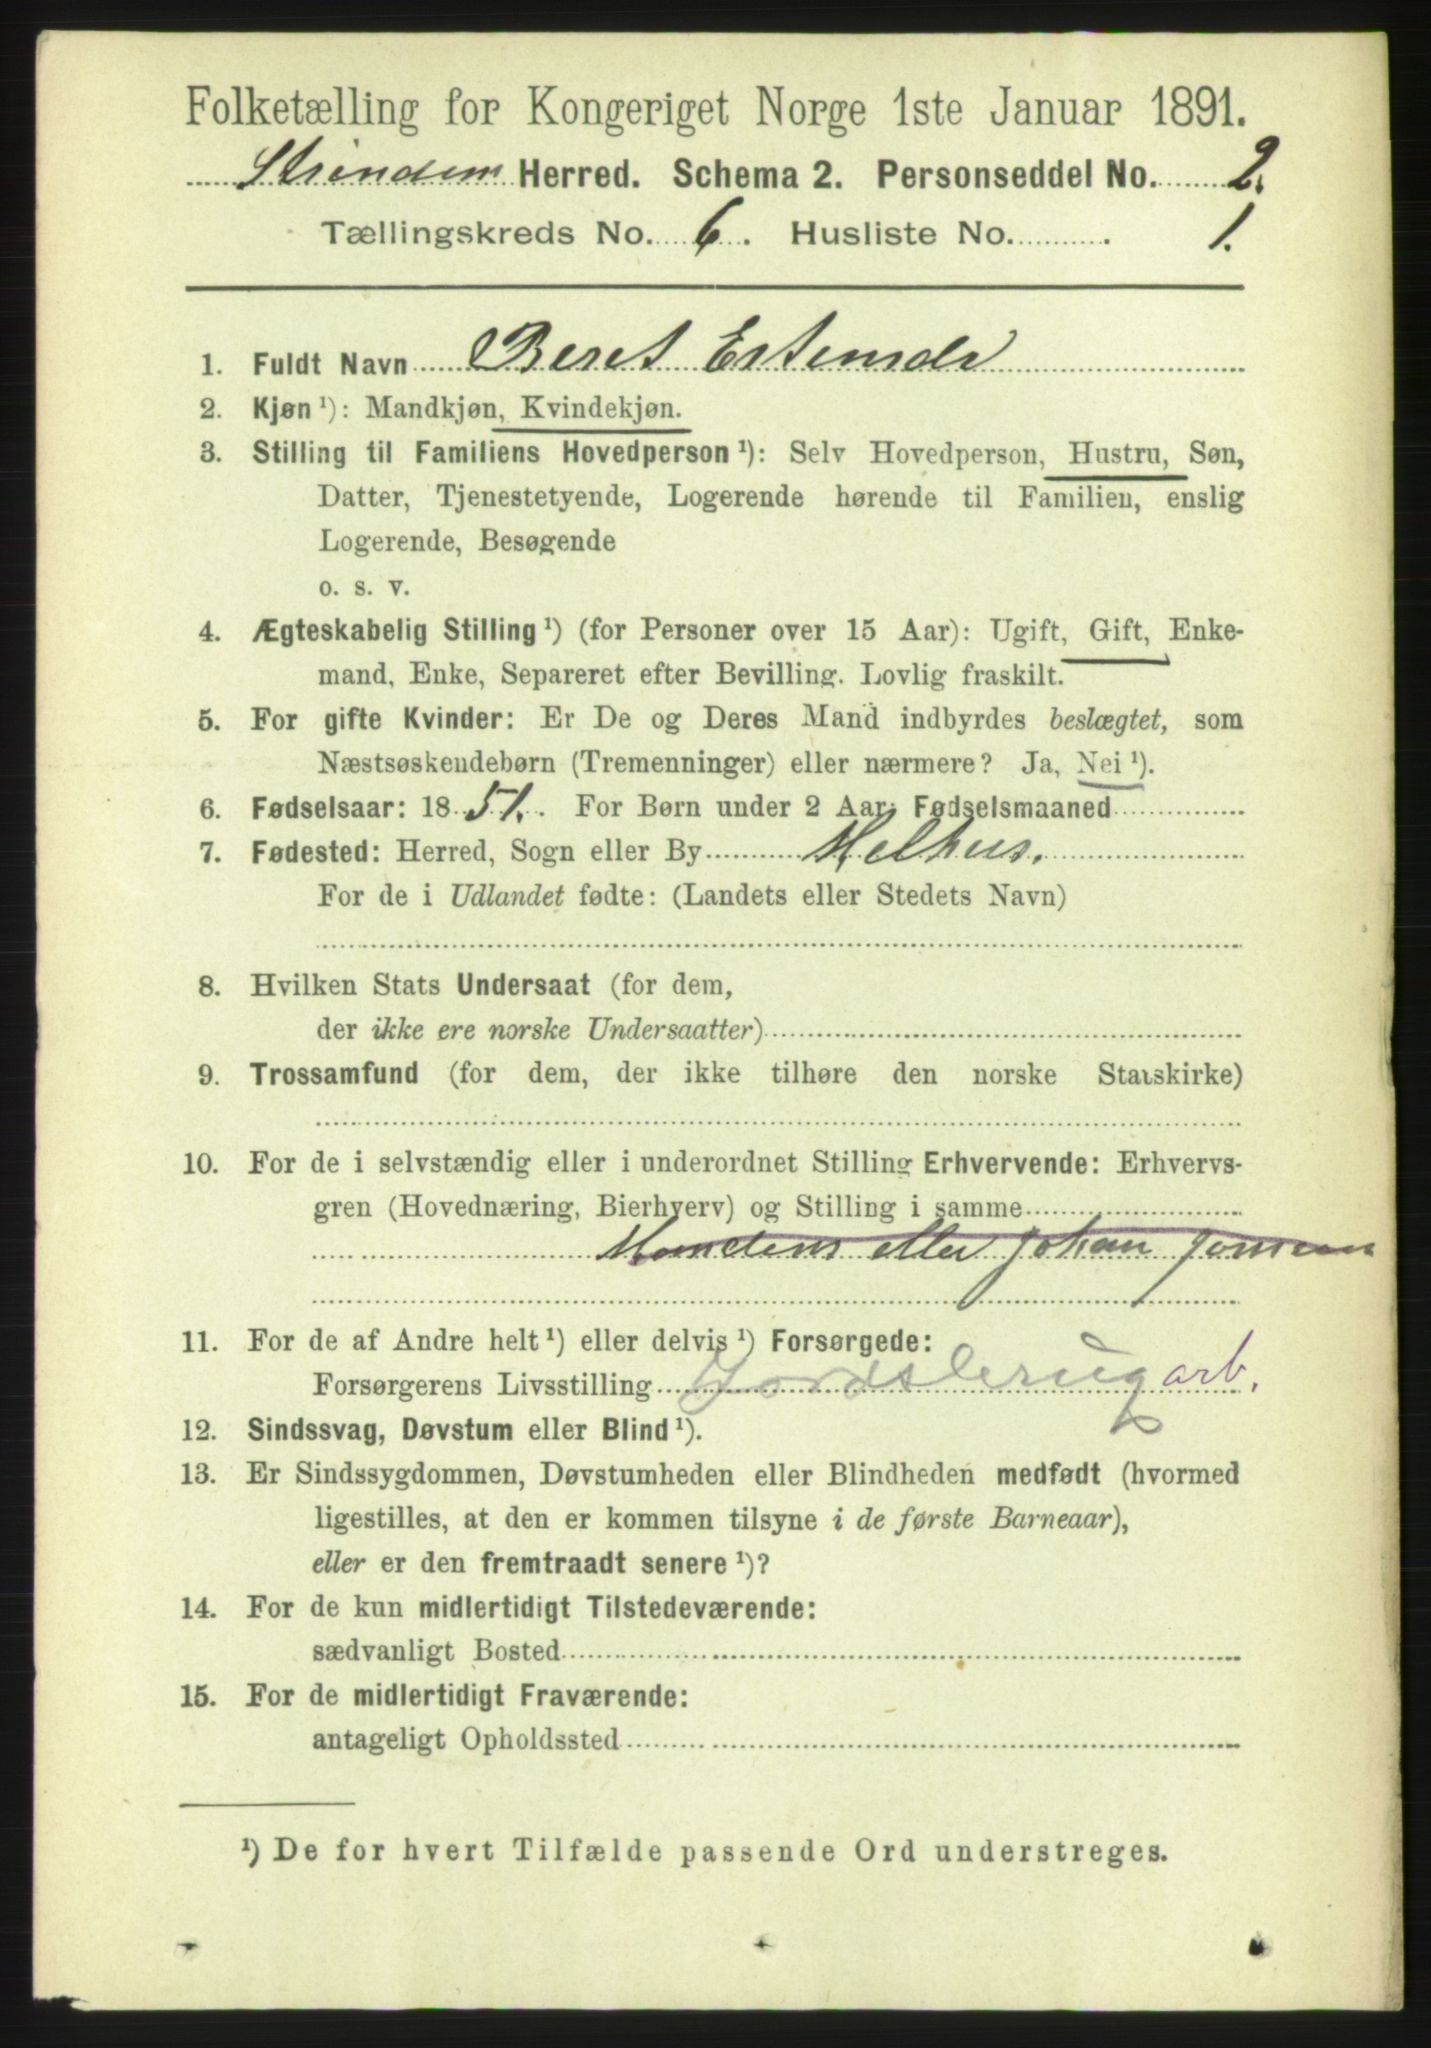 Folketælling for Kongeriget Norge 1ste Januar 1891.
Strinden Herred. Schema 2. Personseddel No. 2.
Tællingskreds No. 6. Husliste No. 1.
1. Fuldt Navn Beret Estensdr
2. Kjøn ¹): Mandkjøn, Kvindekjøn.
3. Stilling til Familiens Hovedperson ¹): Selv Hovedperson, Hustru, Søn,
Datter, Tjenestetyende, Logerende hørende til Familien, enslig
Logerende, Besøgende
o. s. v.
4. Ægteskabelig Stilling ¹) (for Personer over 15 Aar): Ugift, Gift, Enke-
mand, Enke, Separeret efter Bevilling. Lovlig fraskilt.
5. For gifte Kvinder: Er De og Deres Mand indbyrdes beslægtet, som
Næstsøskendebørn (Tremenninger) eller nærmere? Ja, Nei ¹).
6. Fødselsaar: 1851. For Børn under 2 Aar: Fødselsmaaned
7. Fødested: Herred, Sogn eller By Melhus.
For de i Udlandet fødte: (Landets eller Stedets Navn)
8. Hvilken Stats Undersaat (for dem,
der ikke ere norske Undersaatter)
9. Trossamfund (for dem, der ikke tilhøre den norske Statskirke)
10. For de i selvstændig eller i underordnet Stilling Erhvervende: Erhvervs-
gren (Hovednæring, Bierhverv) og Stilling i samme
eller Johan
11. For de af Andre helt ¹) eller delvis ¹) Forsørgede:
Forsørgerens Livsstilling Jordsbrug arb.
12. Sindssvag, Døvstum eller Blind ¹).
13. Er Sindssygdommen, Døvstumheden eller Blindheden medfødt (hvormed
ligestilles, at den er kommen tilsyne i de første Barneaar),
eller er den fremtraadt senere ¹)?
14. For de kun midlertidigt Tilstedeværende:
sædvanligt Bosted
15. For de midlertidigt Fraværende:
antageligt Opholdssted
¹) De for hvert Tilfælde passende Ord understreges.